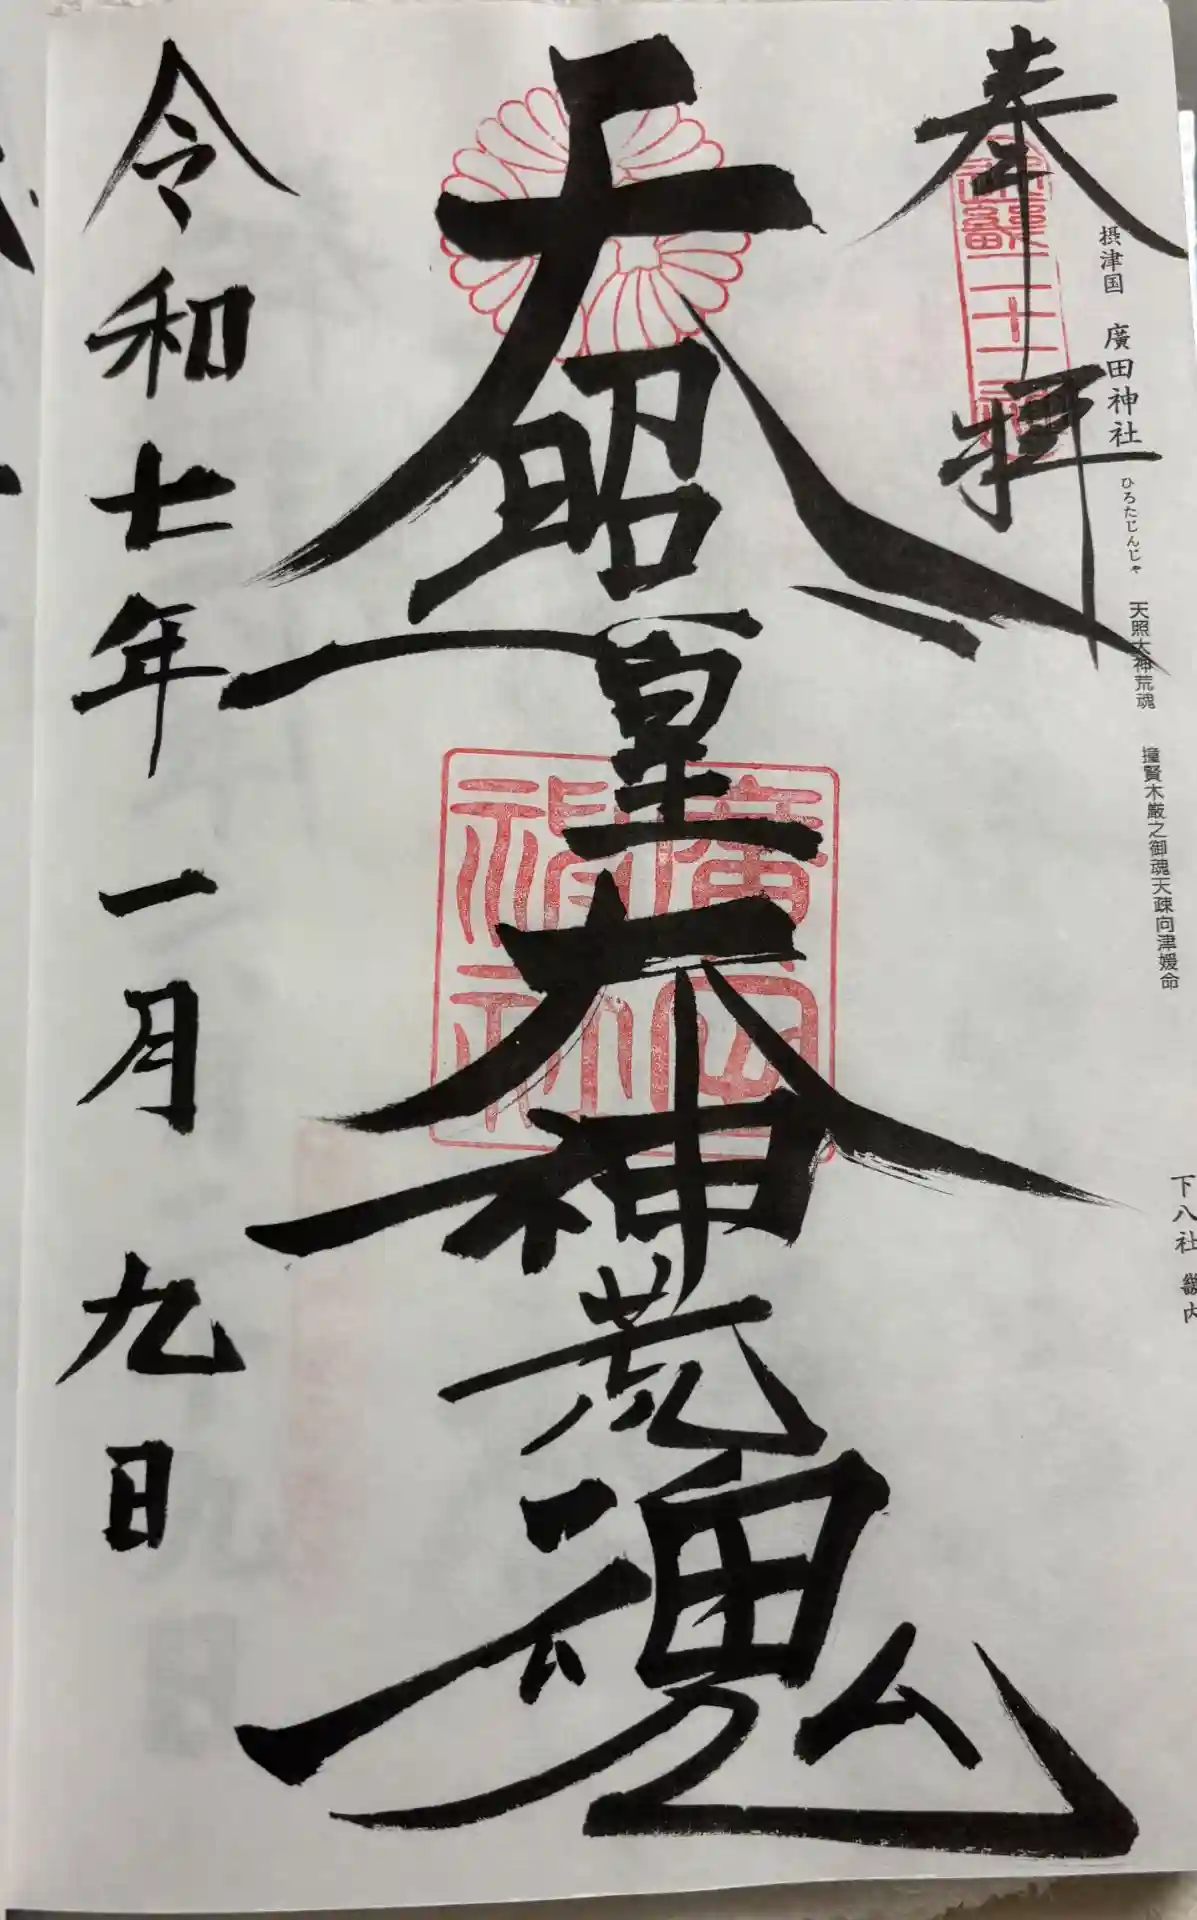 摂津国 廣田神社 ひろたじんじゃ 天照大神荒魂 撞賢木厳之御魂天疎向津媛命
下八社 畿内
奉拝
二十二社
天照皇大神荒魂
廣田神社
令和七年一月九日